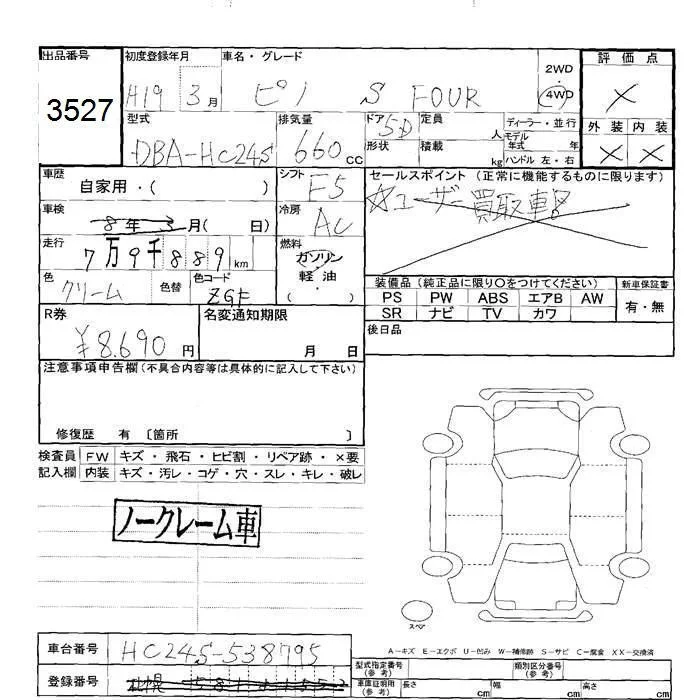 出品番号 初度登録年月 車名・グレード 2WD 評価点
3527 H19 3月 ピノ S FOUR ・ 4WD ×
型式 排気量 ドア 5D 定員 人 ディーラー・並行 外装 内装
DBA-HC24S 660cc 形状 積載 kg モデル年式 年 ハンドル 左・右 × ×
車歴 自家用・( ) シフト F5 セールスポイント (正常に機能するものに限ります)
車検 8年 3月( 日) 冷房 AC ☆ユーザー買取車
走行 7万9千889km 燃料 ガソリン 軽油 ( )
色 クリーム 色替 色コード ZGF
装備品 (純正品に限り○をつけてください) 新車保証書
PS PW ABS エアB AW 有・無
SR ナビ TV カワ
R券 ¥8.690円 名変通知期限 月 日 後日品
注意事項申告欄(不具合内容等は具体的に記入して下さい)
修復歴 有 〔箇所 〕
検査員 FW キズ・飛石・ヒビ割・リペア跡・×要
記入欄 内装 キズ・汚レ・コゲ・穴・スレ・キレ・破レ
ノークレーム車
スペア
A-キズ E-エクボ U-凹み W-補修跡 S-サビ C-腐食 XX-交換済
車台番号 HC24S-538795 型式指定番号(参考) 類別区分番号(参考)
登録番号 札幌 車庫証明用(参考) 長さ cm 幅 cm 高さ cm